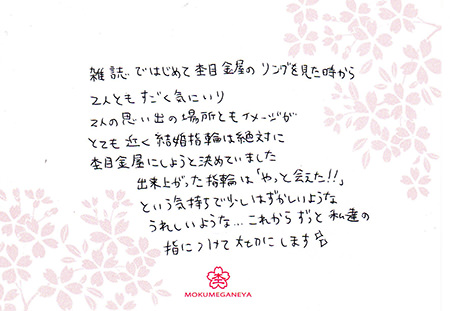 雑誌ではじめて杢目金屋のリングを見た時から
2人ともすごく気にいり
2人の思い出の場所ともイメージが
とても近く結婚指輪は絶対に
杢目金屋にしようと決めていました
出来上がった指輪は「やっと会えた!!」
という気持ちで少しはずかしいような
うれしいような…これからずっと私達の
指につけて大切にします
MOKUMEGANEYA